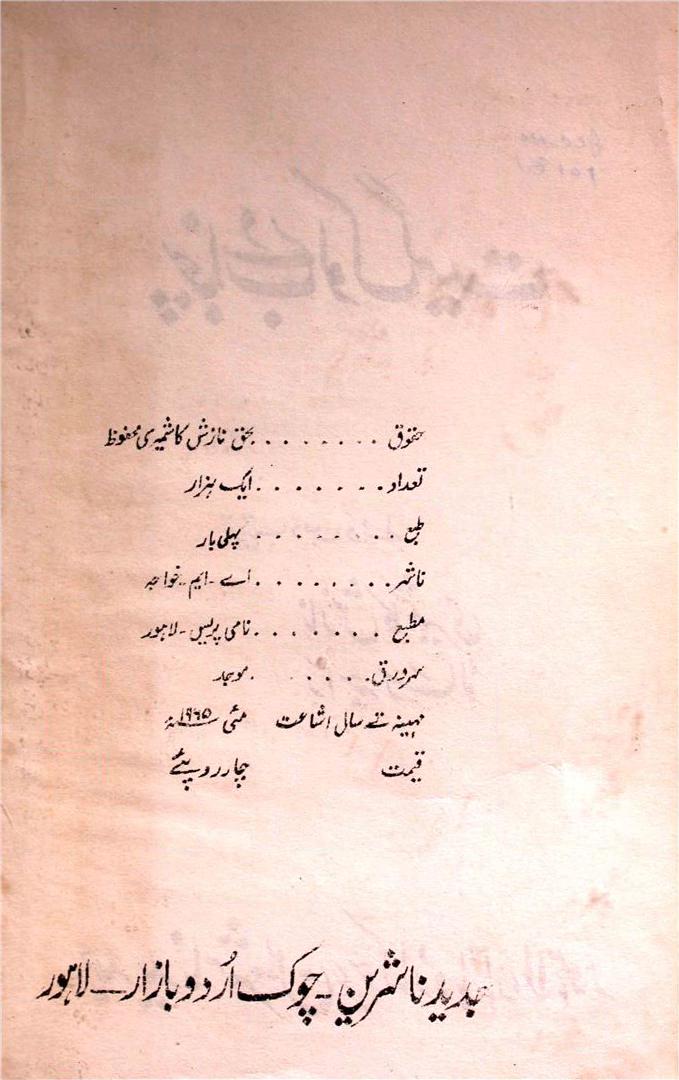 حقوق ........ بحق نازش کاشمیری محفوظ
تعداد ....... ایک ہزار
طبع ........ پہلی بار
ناشر ........ اے - ایم - خواجہ
مطبع ....... نامی پریس - لاہور
سرورق ...... موجد
مہینہ تے سال اشاعت مئی ۱۹۶۵ء
قیمت چار روپئے
جدید ناشرین - چوک اُردو بازار - لاہور